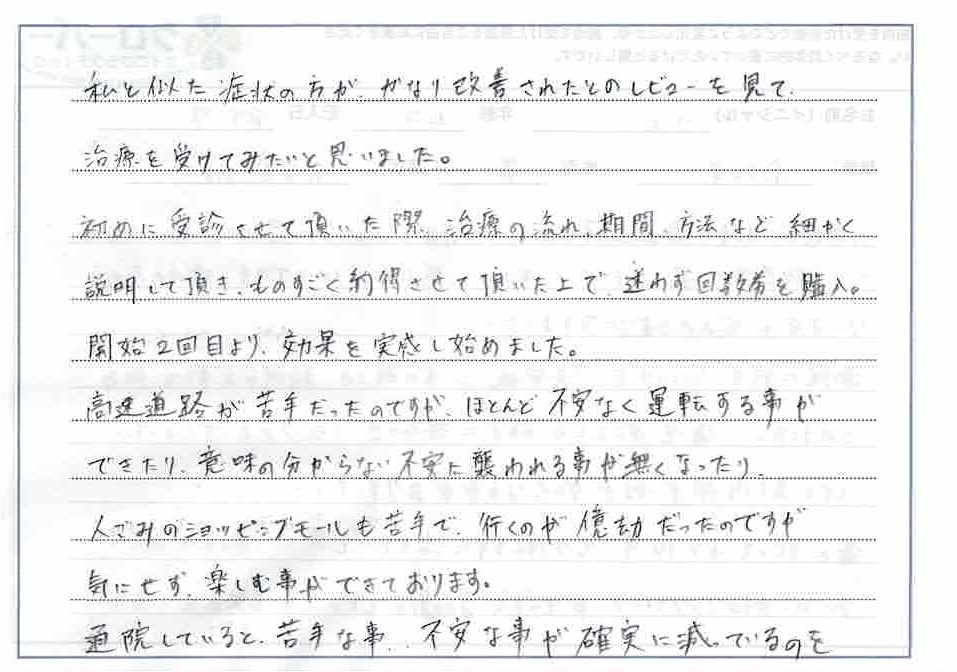 私と似た症状の方が、かなり改善されたとのレビューを見て、
治療を受けてみたいと思いました。
初めに受診させて頂いた際、治療の流れ、期間、方法など細かく
説明して頂き、ものすごく納得させて頂いた上で、迷わず回数券を購入。
開始2回目より、効果を実感し始めました。
高速道路が苦手だったのですが、ほとんど不安なく運転する事が
できたり、意味の分からない不安に襲われる事が無くなったり、
人ごみのショッピングモールも苦手で、行くのが億劫だったのですが
気にせず、楽しむ事ができております。
通院していると、苦手な事、不安な事が確実に減っているのを